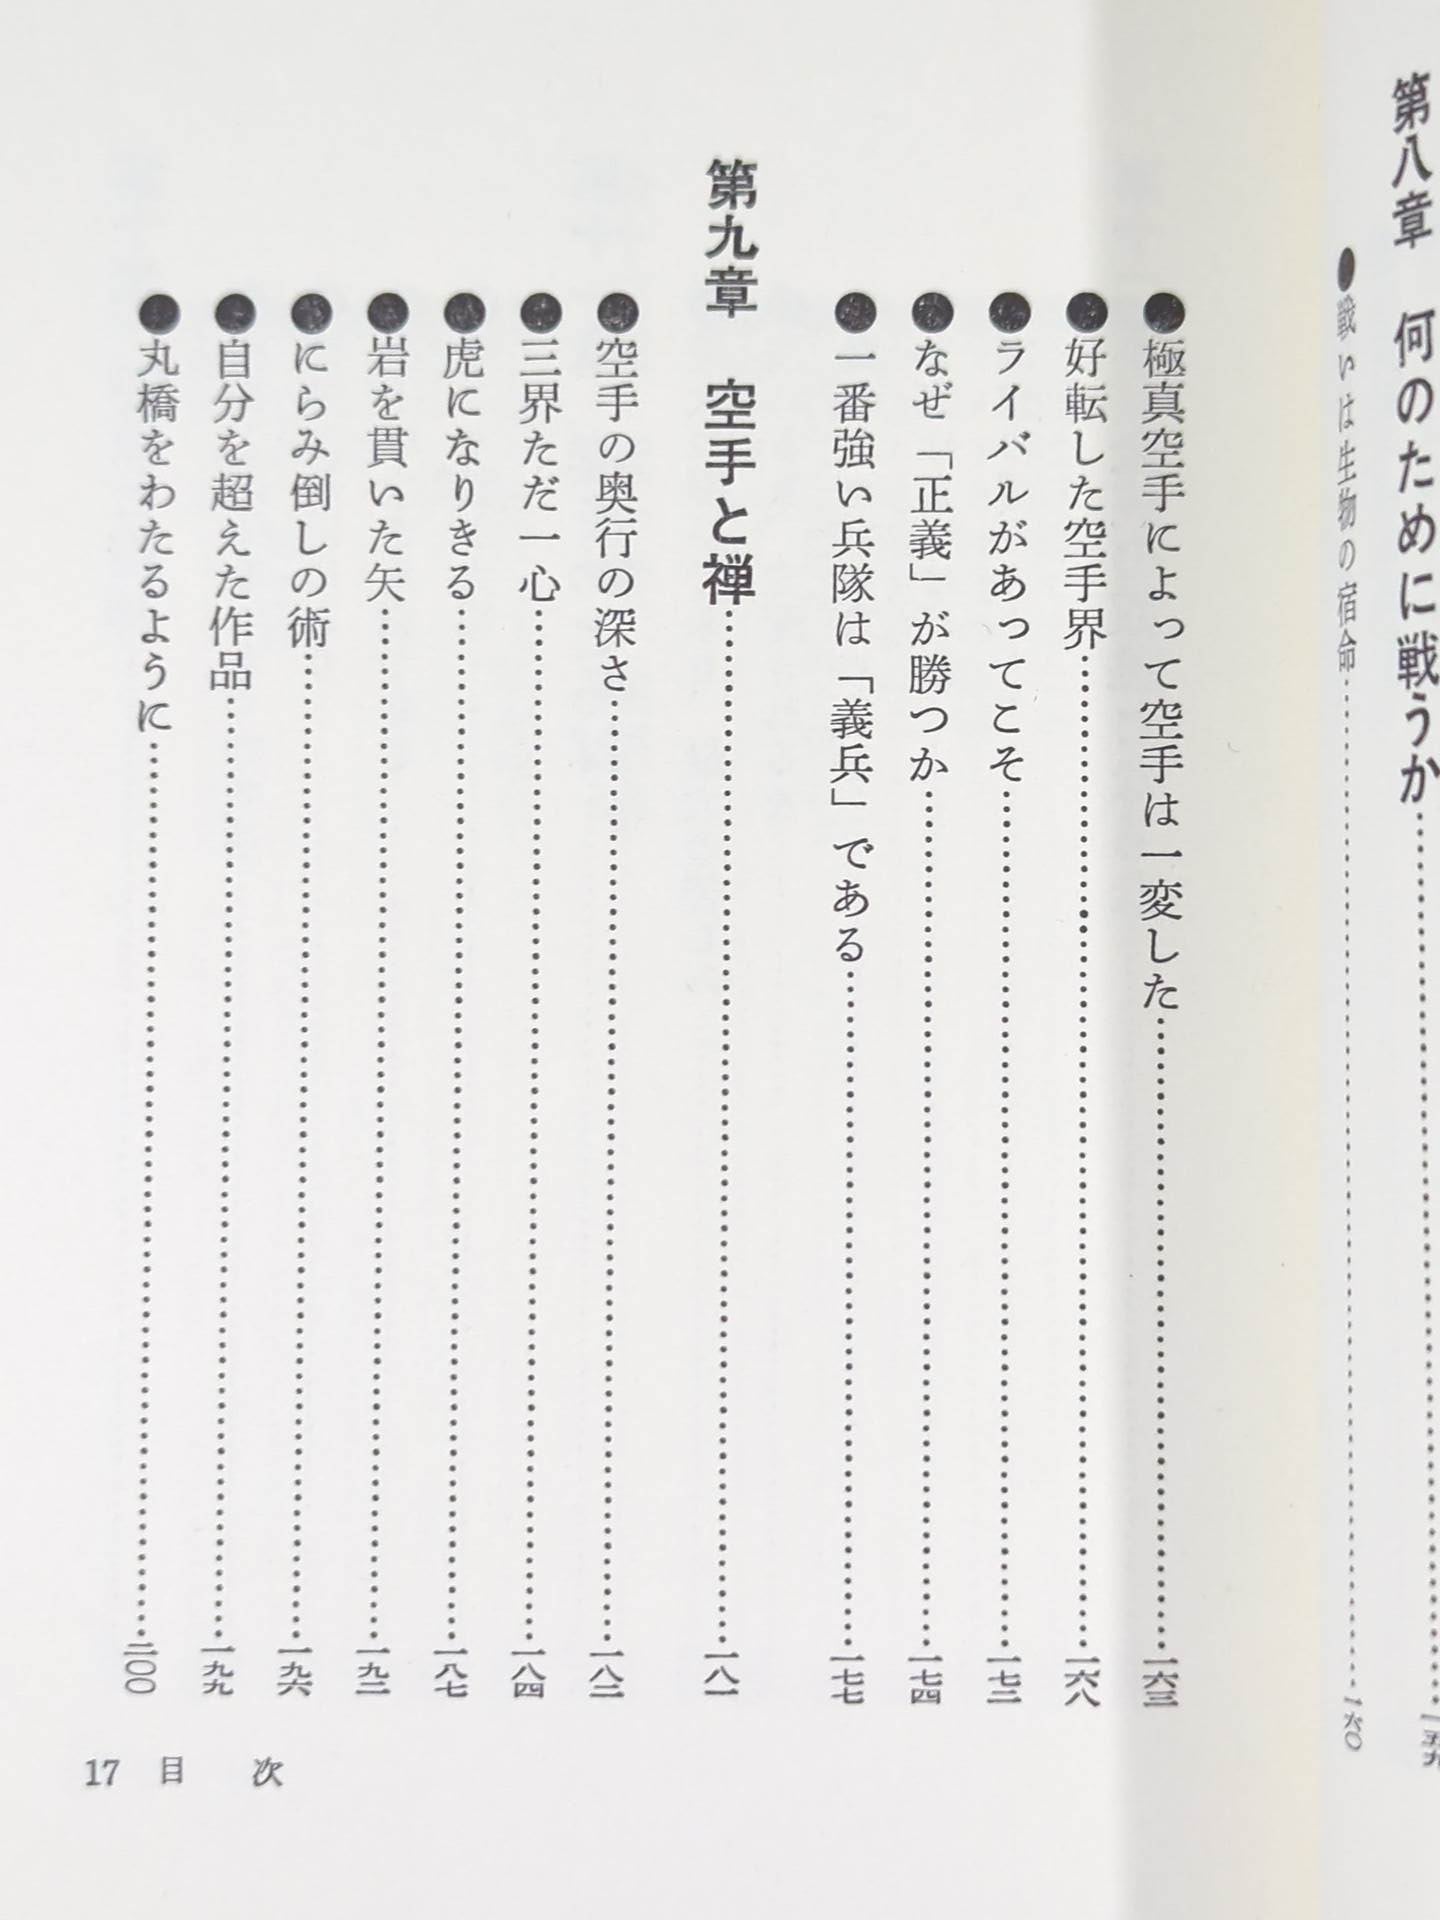 第八章　何のために戦うか……一五九
●戦いは生物の宿命……一六〇
●極真空手によって空手は一変した……一六三
●好転した空手界……一六八
●ライバルがあってこそ……一七二
●なぜ「正義」が勝つか……一七四
●一番強い兵隊は「義兵」である……一七七
第九章　空手と禅……一八一
●空手の奥行の深さ……一八二
●三界ただ一心……一八四
●虎になりきる……一八七
●岩を貫いた矢……一九二
●にらみ倒しの術……一九六
●自分を超えた作品……一九九
●丸橋をわたるように……二〇〇
17　目　次